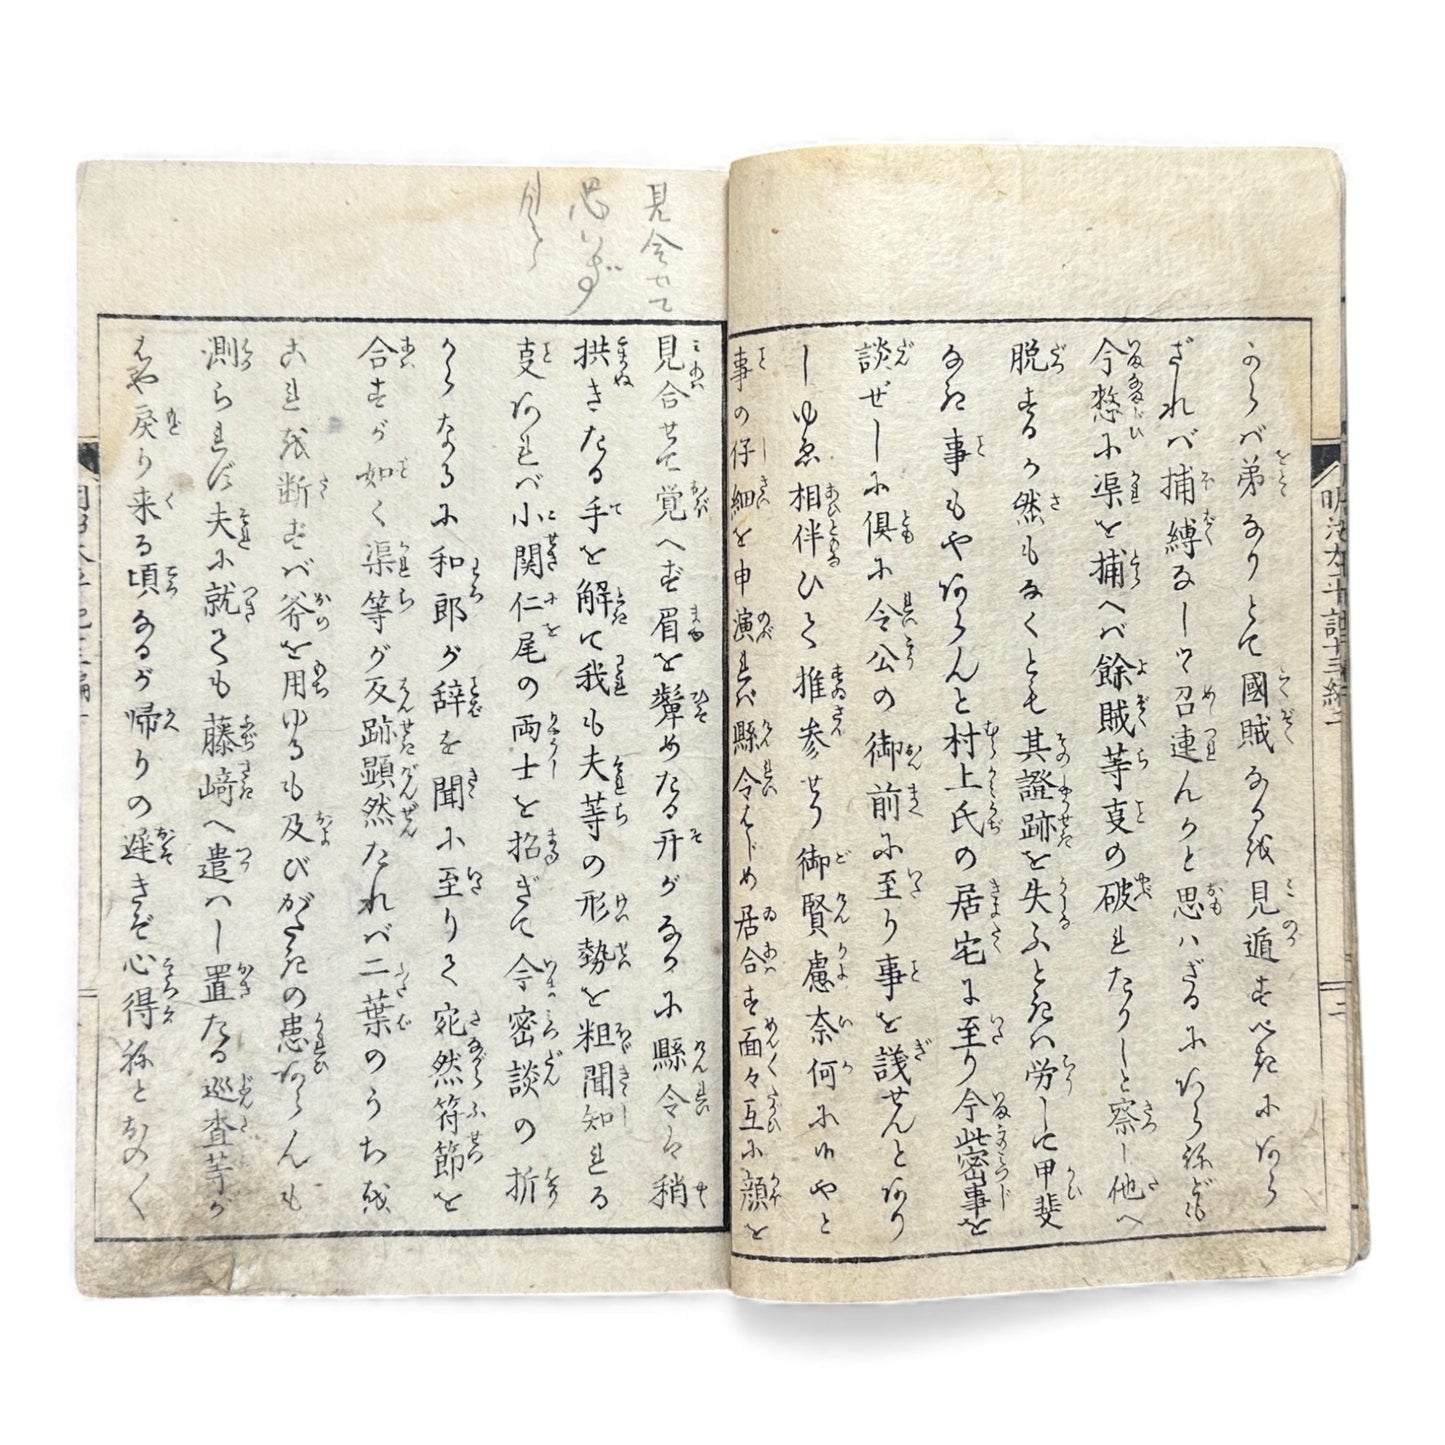 ならば弟なりとて國賊なるを見遁すべきにあら
ざれバ捕縛なして召連んかと思ハざるにあらねども
今憖に渠を捕へバ餘賊等事の破れたりしと察し他へ
脱するか然もなくとも其證跡を失ふときハ労して甲斐
なき事もやあらんと村上氏の居宅に至り今此密事を
談ぜしに倶に令公の御前に至り事を議せんとあり
しゆゑ相伴ひて推参せり御賢慮奈何に候やと
事の仔細を申演れバ縣令はじめ居合す面々互に顔を
見合せて覚へず眉を顰めたる开がなかに縣令ハ稍
拱きたる手を解て我も夫等の形勢を粗聞知れる
事あれバ小関仁尾の両士を招ぎて今密談の折
からなるに和郎が辞を聞に至りて宛然符節を
合すが如く渠等が反跡顕然たれバ二葉のうちを
これを断ずバ斧を用ゆるも及びがたきの患あらんも
測られず夫に就ても藤﨑へ遣ハし置たる巡査等が
はや戻り来る頃なるが帰りの遅きぞ心得ねとおのく
見合せて
思いず
明治太平記十三編二